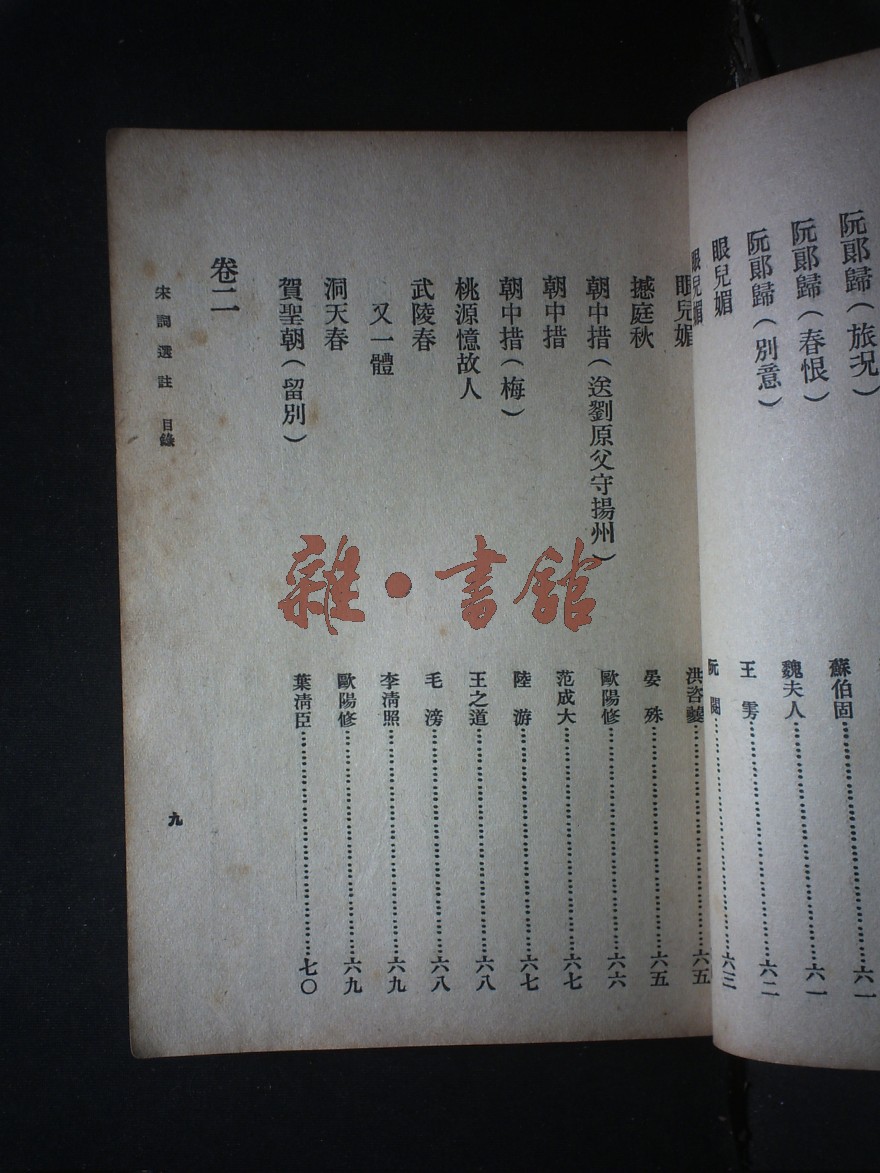 阮郞歸(旅況) 蘇伯固……六一
阮郞歸(春恨) 魏夫人……六一
阮郞歸(別意) 王雱……六二
眼兒媚 阮閱……六三
眼兒媚
眼兒媚 洪咨夔……六五
撼庭秋 晏殊……六五
朝中措(送劉原父守揚州) 歐陽修……六六
朝中措 范成大……六七
朝中措(梅) 陸游……六七
桃源憶故人 王之道……六八
武陵春 毛滂……六八
又一體 李淸照……六九
洞天春 歐陽修……六九
賀聖朝(留別) 葉淸臣……七〇
卷二
宋詞選註 目錄 九
雜•書舘